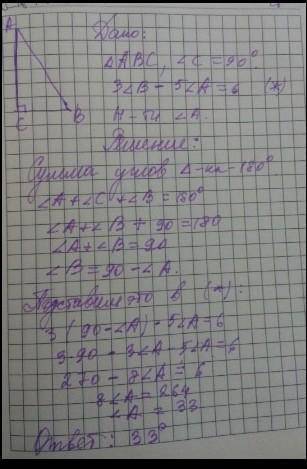 A
C
B
Дано:
△ABC, ∠C = 90°.
3∠B - 5∠A = 6 (*)
Н-ти ∠A.
Решение:
Сумма углов Δ-ка - 180°.
∠A+∠C+∠B=180°
∠A+∠B+90=180
∠A+∠B=90
∠B=90-∠A.
Подставим это в (*):
3(90-∠A)-5∠A=6
3·90-3∠A-5∠A=6
270-8∠A=6
8∠A=264
∠A=33
Ответ: 33°